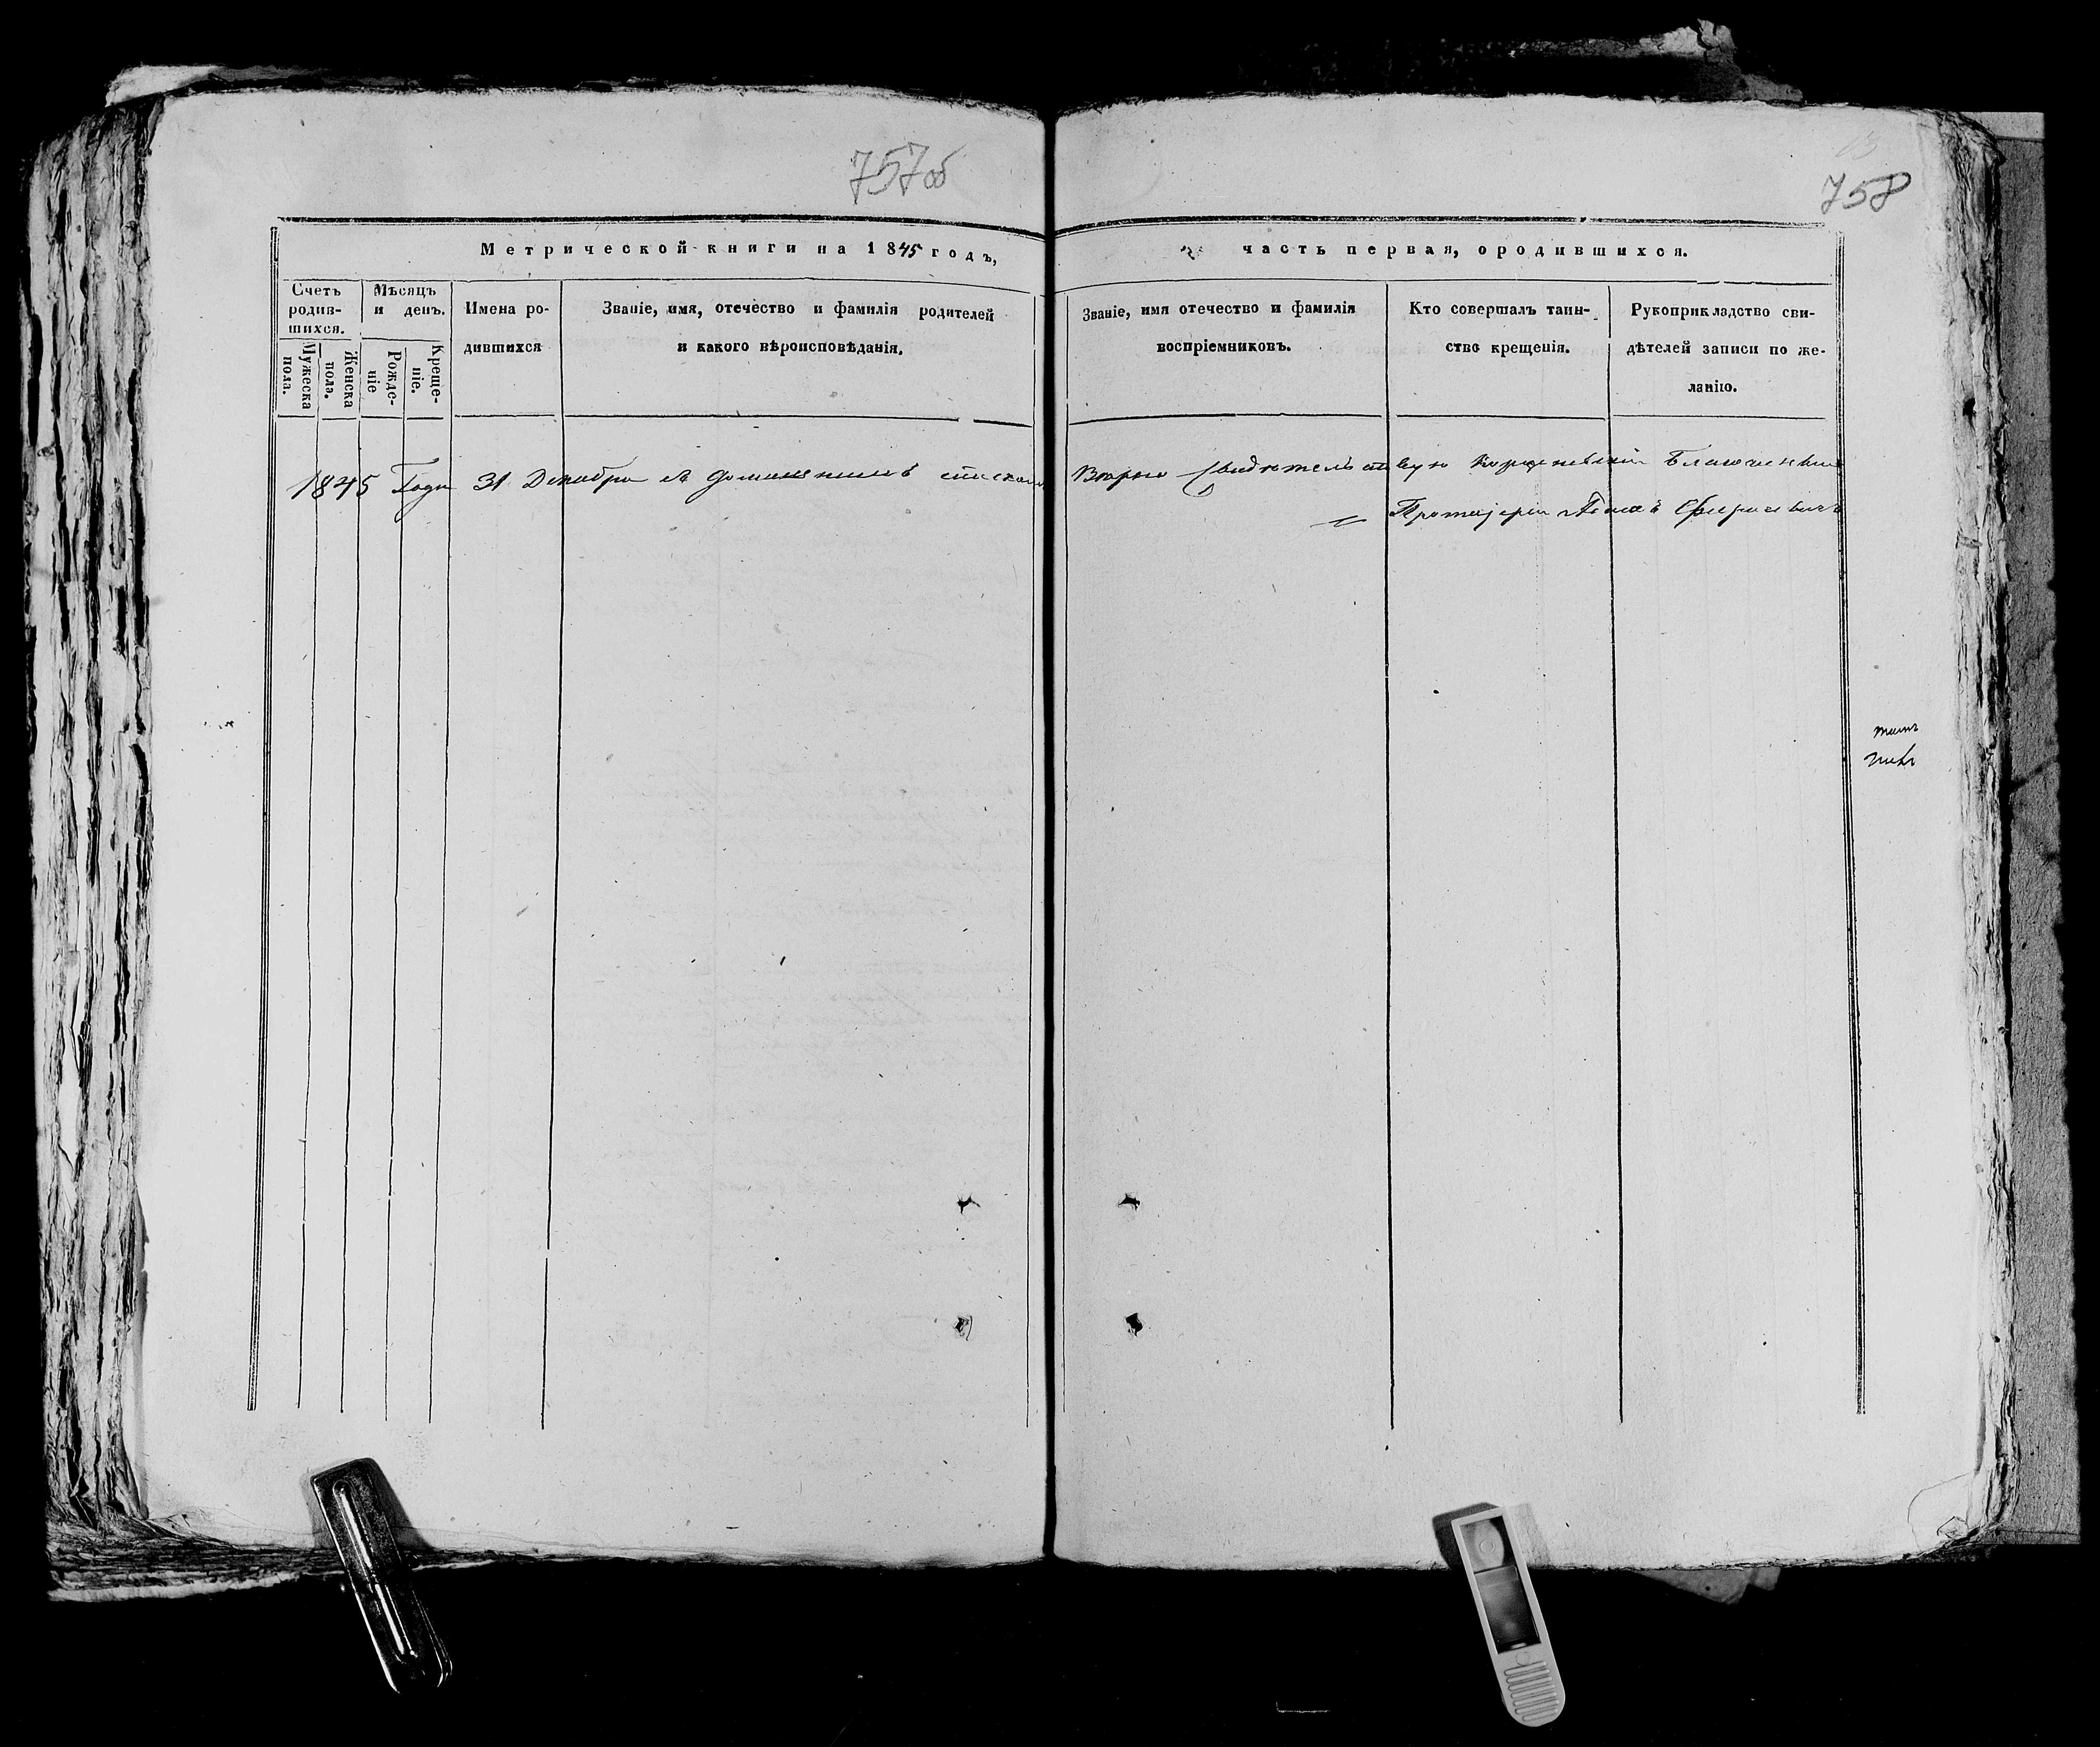 757об
758
Метрической книги на 1845 годъ, часть первая, о родившихся.
Счетъ родив-шихся.
Мужеска пола.
Женска пола.
Мѣсяцъ и день.
Рожде-ніе
Креще-ніе.
Имена ро-дившихся
Званіе, имя, отечество и фамилія родителей
и какого вѣроисповѣданія.
Званіе, имя отечество и фамилія
воспріемниковъ.
Кто совершалъ таин-
ство крещенія.
Рукоприкладство сви-
дѣтелей записи по же-
ланію.
1845 Года 31 Декабря съ домашнимъ спискомъ Вѣрно Свидѣтельствую Благочинный
Протоіерей